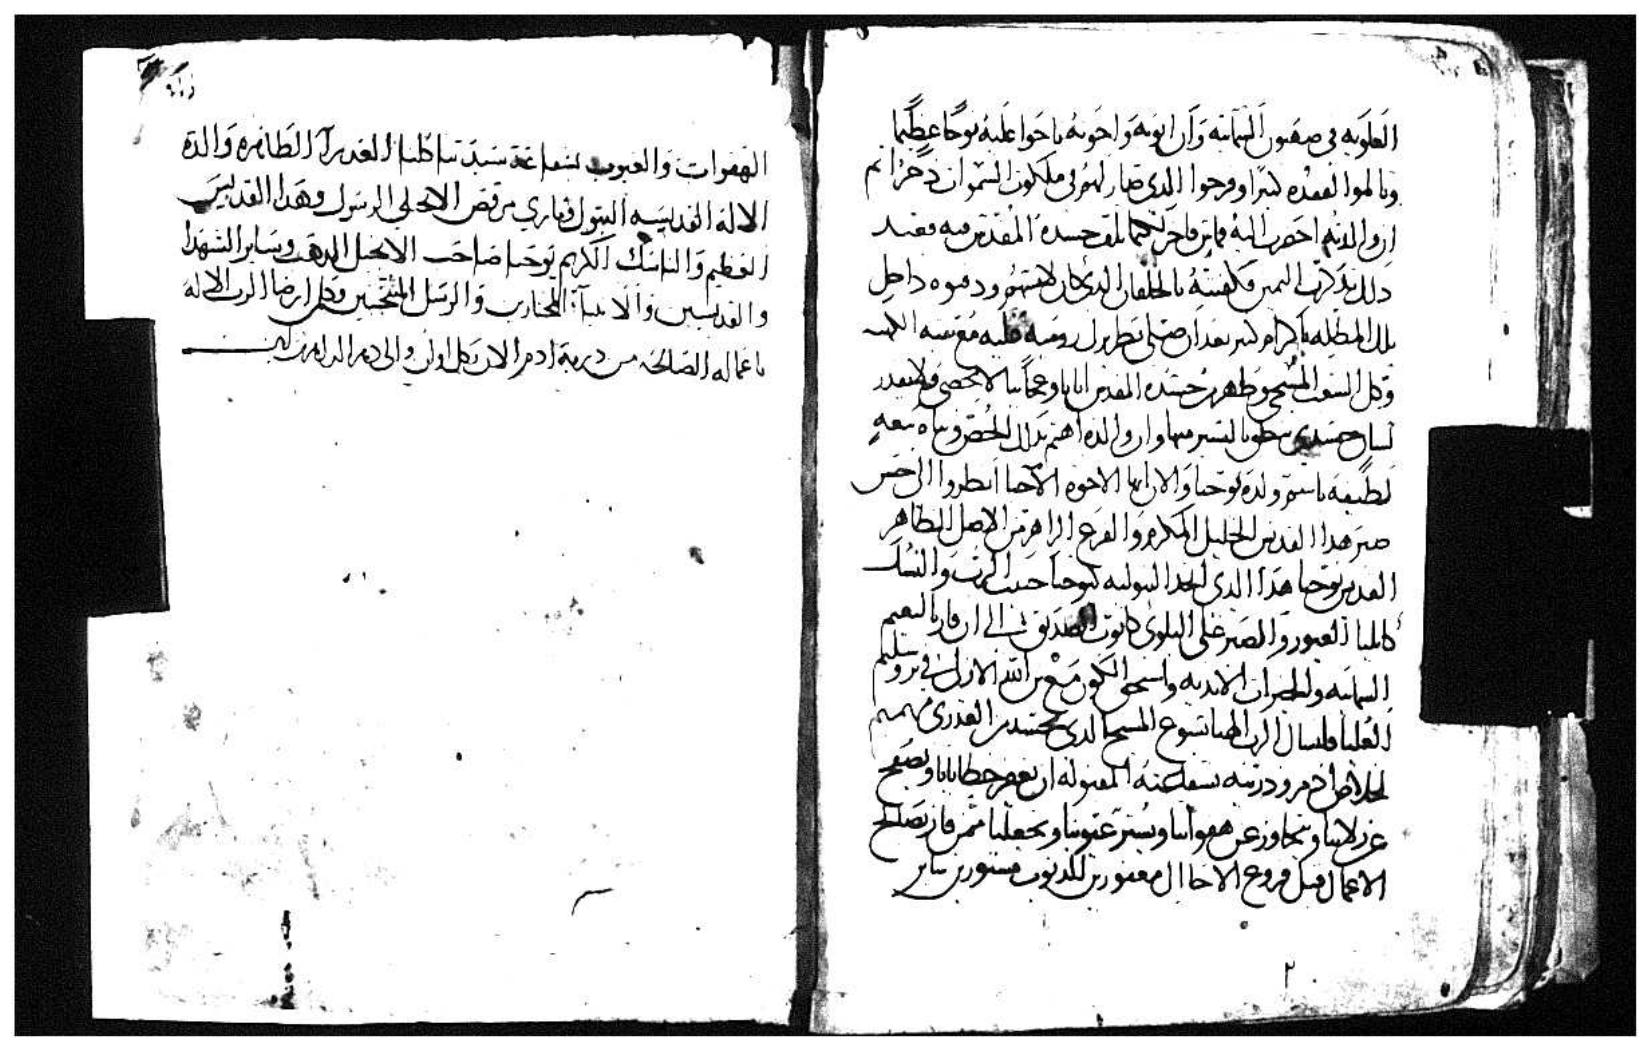 العلويه في صهيون السمائيه وان ابويه واخوته ناحوا عليه نوحا عظيما
وتالموا لفقده كثيرا وفرحوا الذي صار لهم في ملكوت السموات ذخرا ثم
ان والدته احضرت اليه ثياب فاخره لكيما تلف جسده المقدس فيه فعند
ذلك تذكرت اليمين وكفنته بالخلقان الذي كان لابسهم ودفنوه داخل
تلك المظله باكرام كثير بعد ان صلى بطريرك روميه عليه مع قسه الكنيسه
وكل الشعب المسيحي وظهر من جسده المقدس ايات وعجائبا لا تحصى ولا يقدر
لسان جسدي ينطق باليسير منها وان والده اهتم بذلك الخص وبناه بيعه
لطيفه باسم ولده يوحنا والان ايها الاخوه الاحبا انظروا الى حسن
صبر هذا القديس الجليل المكرم والفرع الزاهر من الاصل الطاهر
القديس يوحنا هذا الذي اخذ البتوليه كيوحنا حبيب الرب والنسك
كايليا الغيور والصبر على البلوى كايوب الصديق الى ان فاز بالنعيم
السمائيه والخيرات الابديه واستحق الكون مع ابن الله الازلي في يروشليم
العليا فلنسال الرب الهنا يسوع المسيح الذي تجسد من العذرى مرتمريم
لخلاص ادم وذريته بشفاعته المقبوله ان يغفر خطايانا ويصفح
عن زلاتنا ويتجاوز عن هفواتنا ويستر عيوبنا ويجعلنا ممن فاز بصالح
الاعمال قبل فروغ الاجال مغفورين للذنوب مستورين ساير
الهفوات والعيوب بشفاعة سيدتنا كلنا العذرا الطاهره والدة
الاله القديسه البتول وماري مرقص الانجيلي الرسول وهذا القديس
العظيم والناسك الكريم يوحنا صاحب الانجيل الدهب وساير الشهدا
والقديسين والانبياء المختارين والرسل المنتخبين وكل من ارضا الرب الاله
باعماله الصالحه من ذرية ادم الان وكل اوان والى دهر الداهرين امين
٢